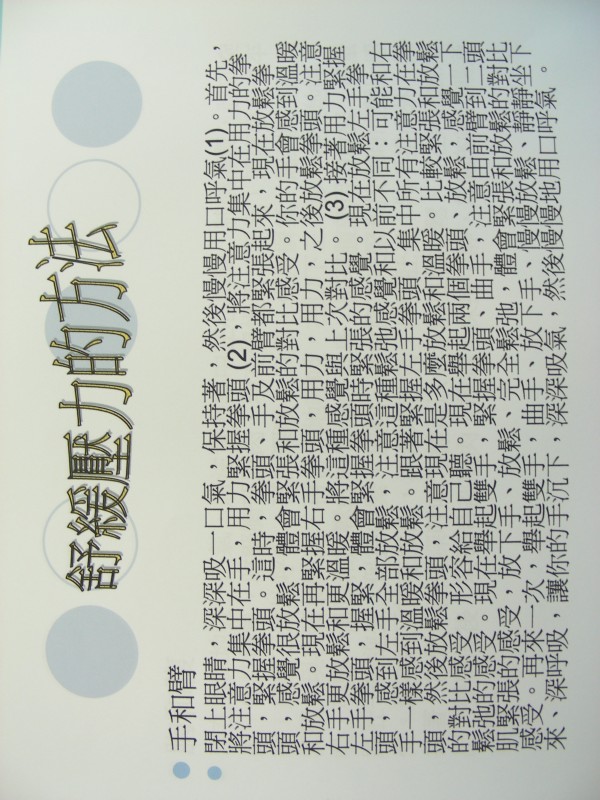 舒緩壓力的方法
手和臂
閉上眼睛，深深吸一口氣，保持著，然後慢慢用口呼氣(1)。首先，
將注意力集中在手，用力緊握拳頭(2)，將注意力集中在用力的拳
頭，緊握拳頭。這時，拳頭、手及前臂都緊張起來，現在放鬆拳
頭，感覺很放鬆，體會緊張和放鬆的對比感受。你的手會感到溫暖
和放鬆。現在再緊握右手拳頭，用力，用力，之後放鬆拳頭。注意
右手更放鬆和更溫暖。將這種感覺與上次對比。(3)接著用力緊握
左手拳頭，握緊，體會緊握拳頭時緊張的感覺。現在放鬆左手拳
頭，感到左手全部放鬆，注意這種鬆弛感覺和以前不同：可能和右
手一樣感到溫暖和放鬆。跟著緊握左手拳頭，集中所有注意力在拳
頭，然後放鬆拳頭，注意現在是多麼放鬆和溫暖。比較緊張和放鬆
的對比感受，形容給自己聽。現在舉起兩個拳頭、放鬆，感覺一下
鬆弛的感受。現在舉起雙手，緊握拳頭、曲手，注意由前臂到二頭
肌緊張的感受，放下手、放鬆、完全鬆弛，體會緊張和放鬆的對比
感受。再來一次，舉起雙手、曲手、放下手、慢慢放鬆、靜靜坐下
來、深呼吸，讓你的手沉下，深深吸氣，然後慢慢地用口呼氣。